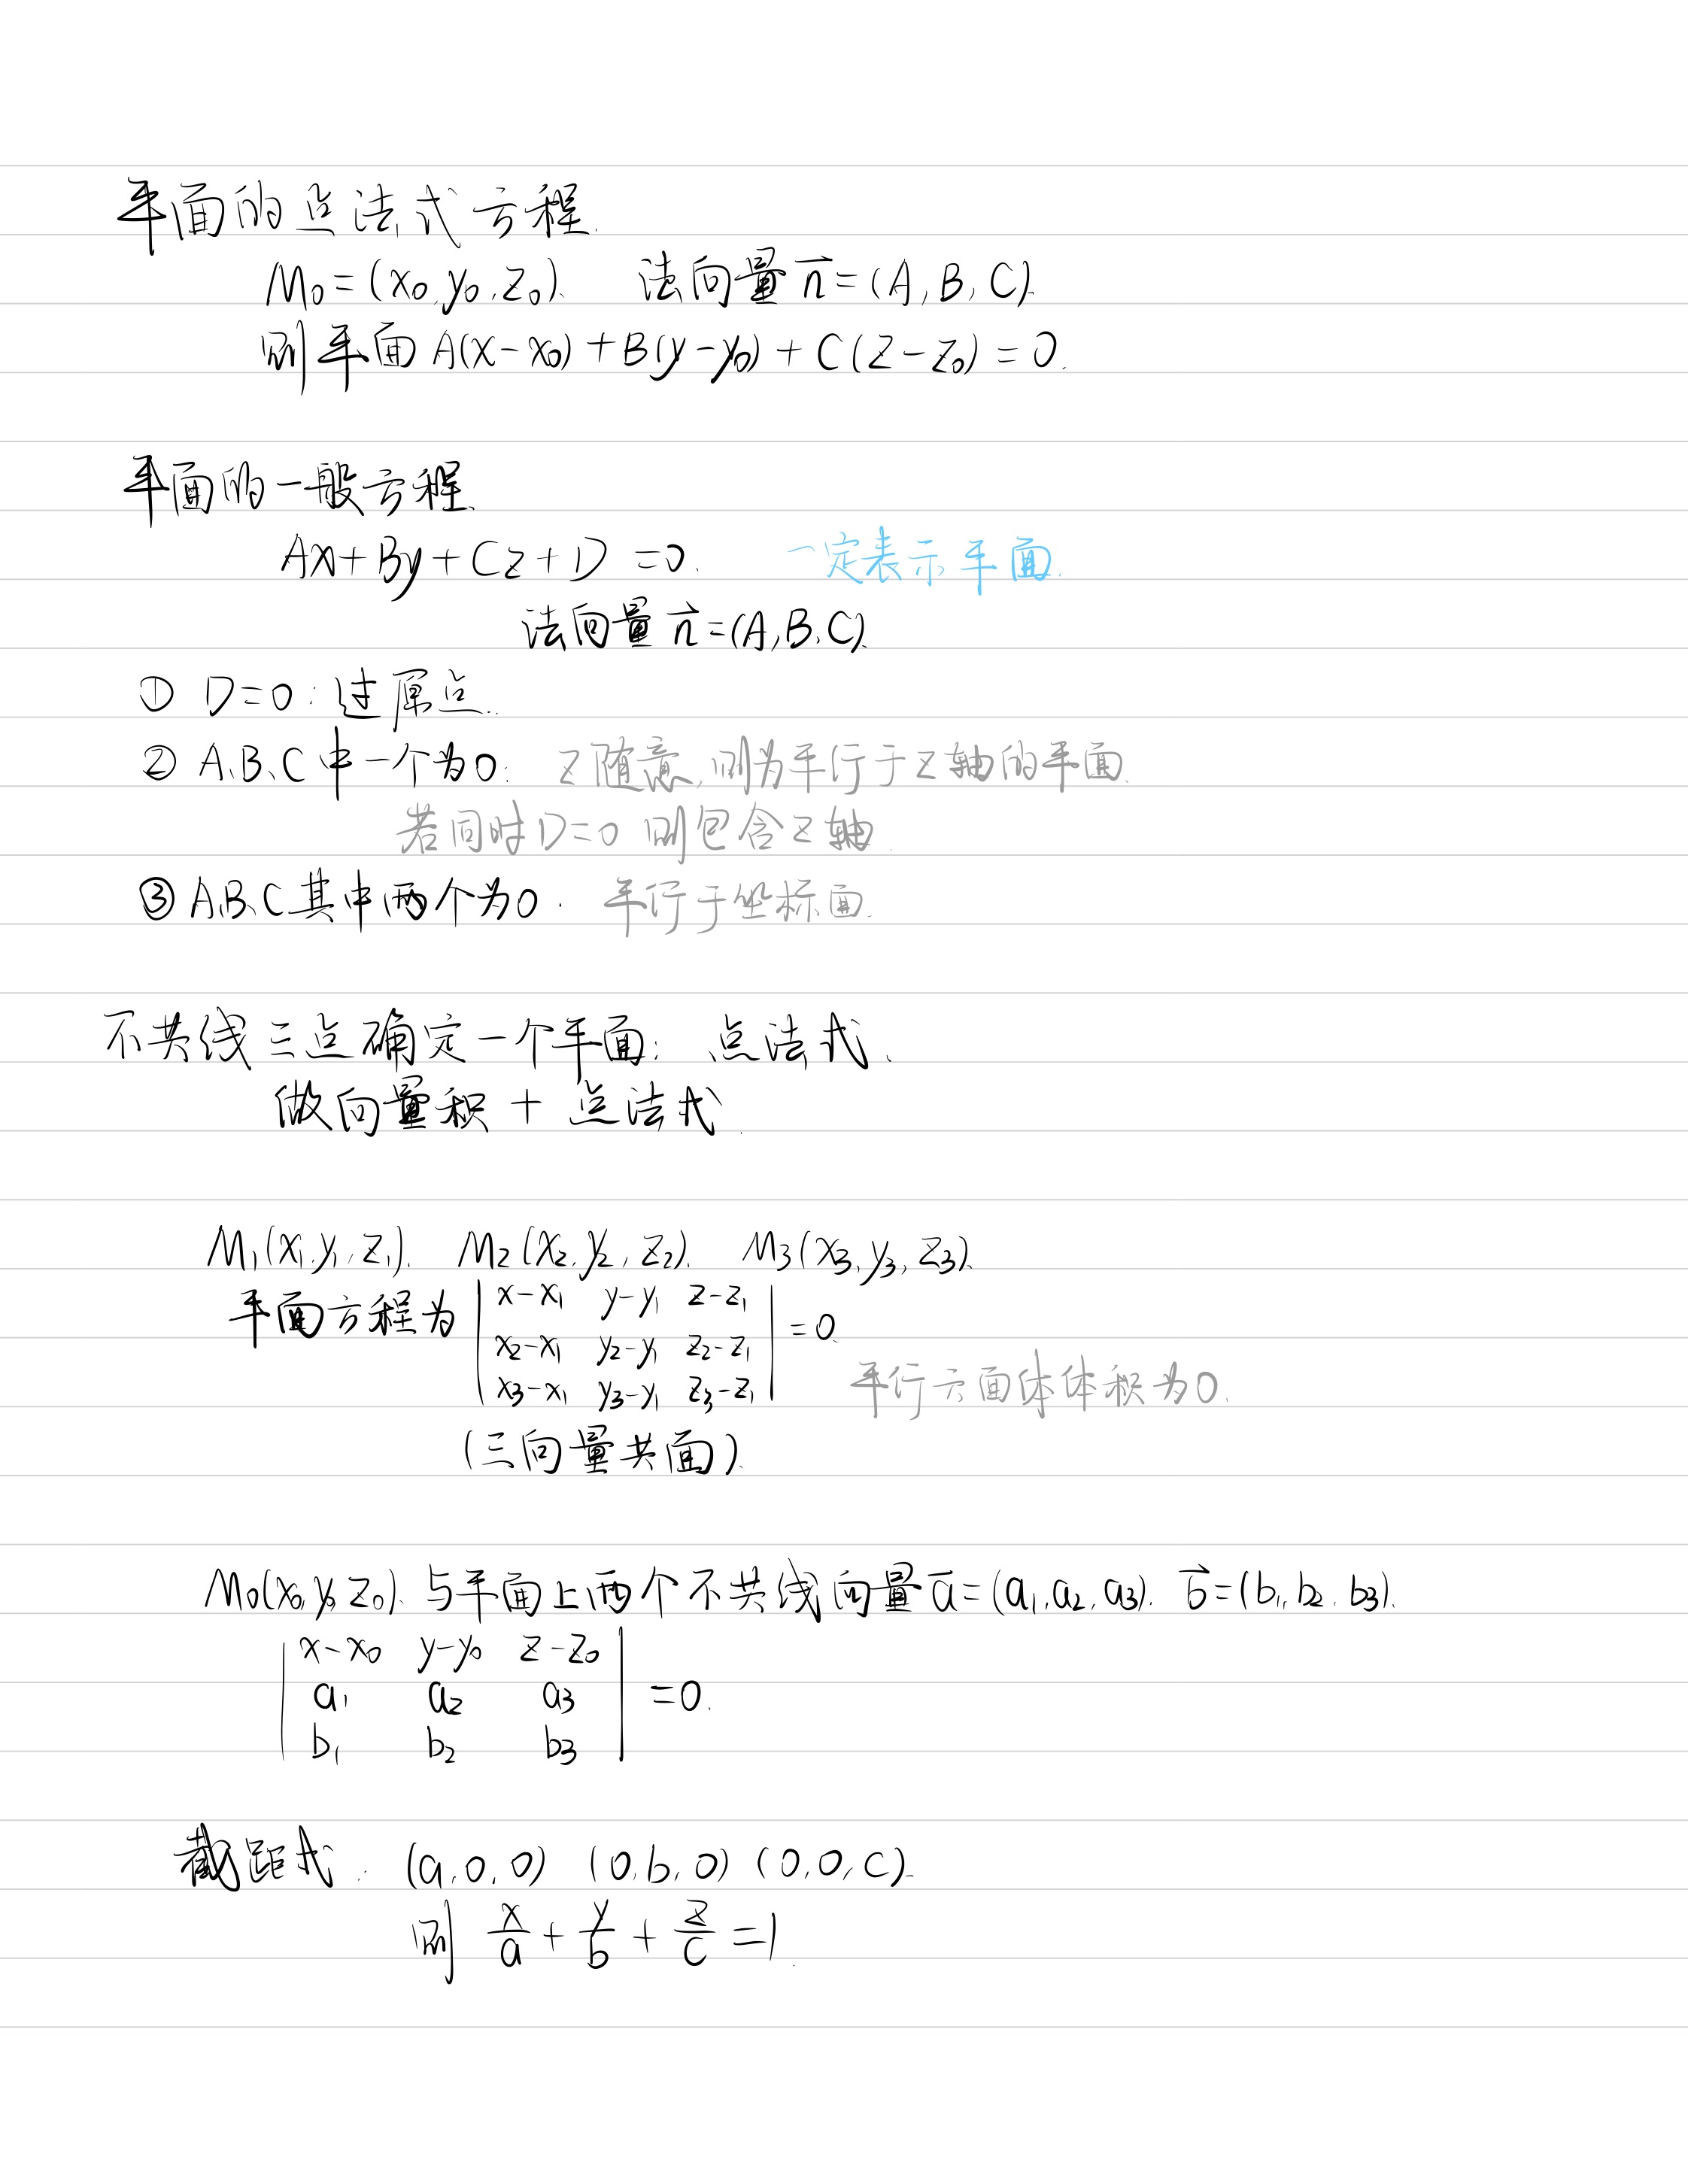 平面的点法式方程.
M₀=(x₀,y₀,z₀). 法向量 n⃗=(A,B,C).
则平面 A(x-x₀)+B(y-y₀)+C(z-z₀)=0.
平面的一般方程.
Ax+By+Cz+D=0. 一定表示平面.
法向量 n⃗=(A,B,C).
① D=0:过原点.
② A、B、C中一个为0: z随意,则为平行于z轴的平面.
若同时D=0 则包含z轴.
③ A、B、C其中两个为0. 平行于坐标面.
不共线三点确定一个平面: 点法式.
做向量积 + 点法式.
M₁(x₁,y₁,z₁). M₂(x₂,y₂,z₂). M₃(x₃,y₃,z₃).
平面方程为 | x-x₁ y-y₁ z-z₁ |
| x₂-x₁ y₂-y₁ z₂-z₁ | =0.
| x₃-x₁ y₃-y₁ z₃-z₁ | 平行六面体体积为0.
(三向量共面).
M₀(x₀,y₀,z₀). 与平面上两个不共线向量 a⃗=(a₁,a₂,a₃). b⃗=(b₁,b₂,b₃).
| x-x₀ y-y₀ z-z₀ |
| a₁ a₂ a₃ | =0.
| b₁ b₂ b₃ |
截距式. (a,0,0) (0,b,0) (0,0,c).
则 x/a + y/b + z/c =1.